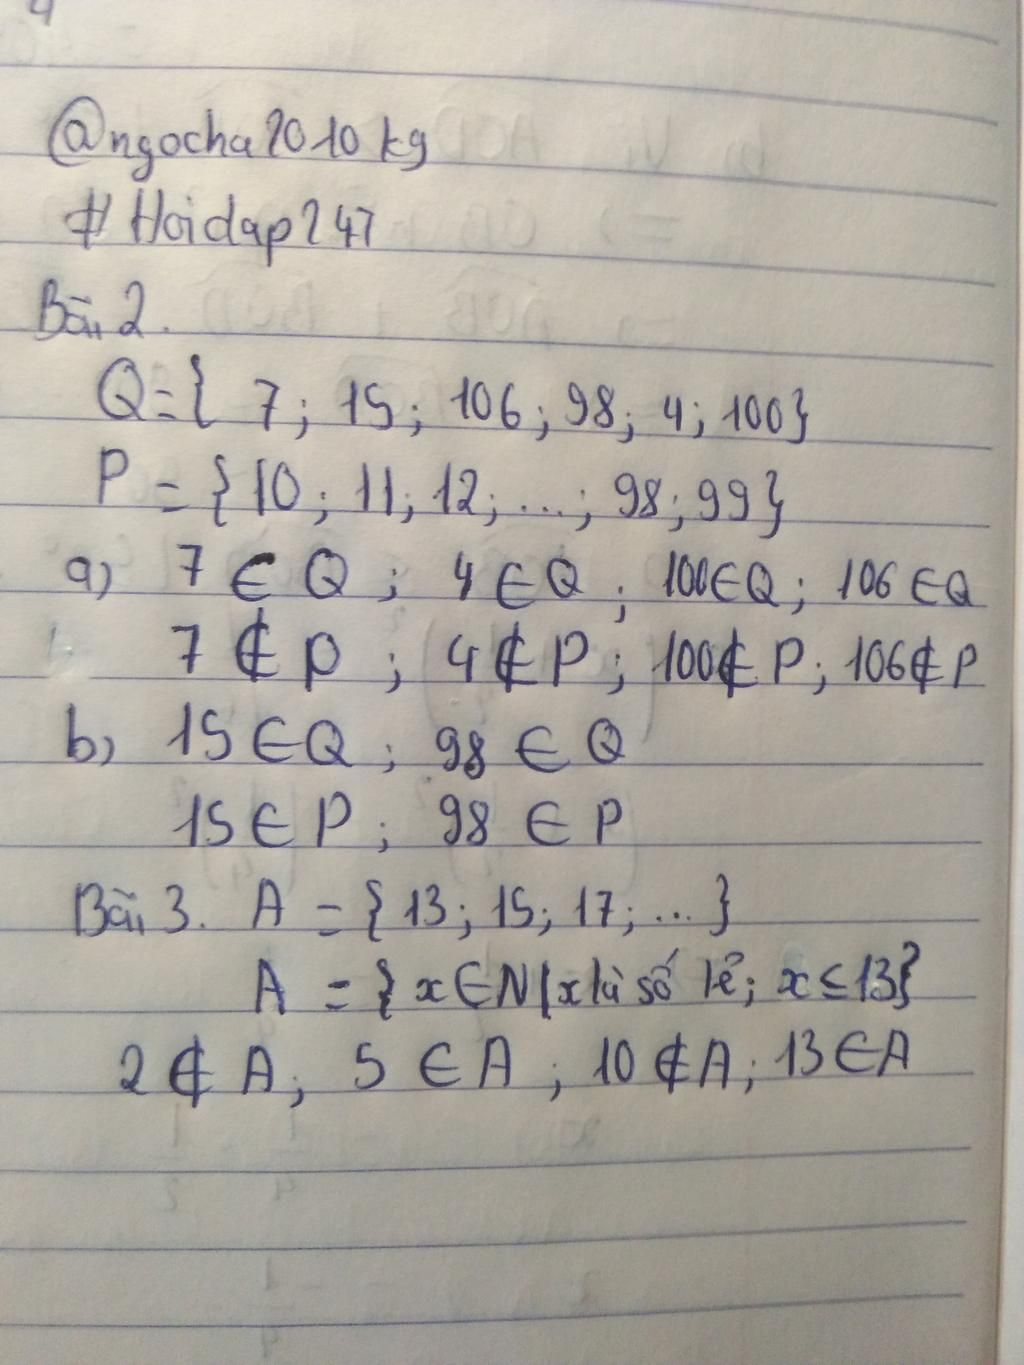 @ngocha2010kg
#Hoidap247
Bài 2.
Q = { 7; 15; 106; 98; 4; 100}
P = {10; 11; 12; ...; 98; 99}
a) 7 ∈ Q ; 4 ∈ Q ; 100 ∈ Q ; 106 ∈ Q
7 ∉ P ; 4 ∉ P ; 100 ∉ P ; 106 ∉ P
b) 15 ∈ Q ; 98 ∈ Q
15 ∈ P ; 98 ∈ P
Bài 3. A = {13; 15; 17; ...}
A = {x ∈ N | x là số lẻ; x ≤ 13}
2 ∉ A ; 5 ∈ A ; 10 ∉ A ; 13 ∈ A